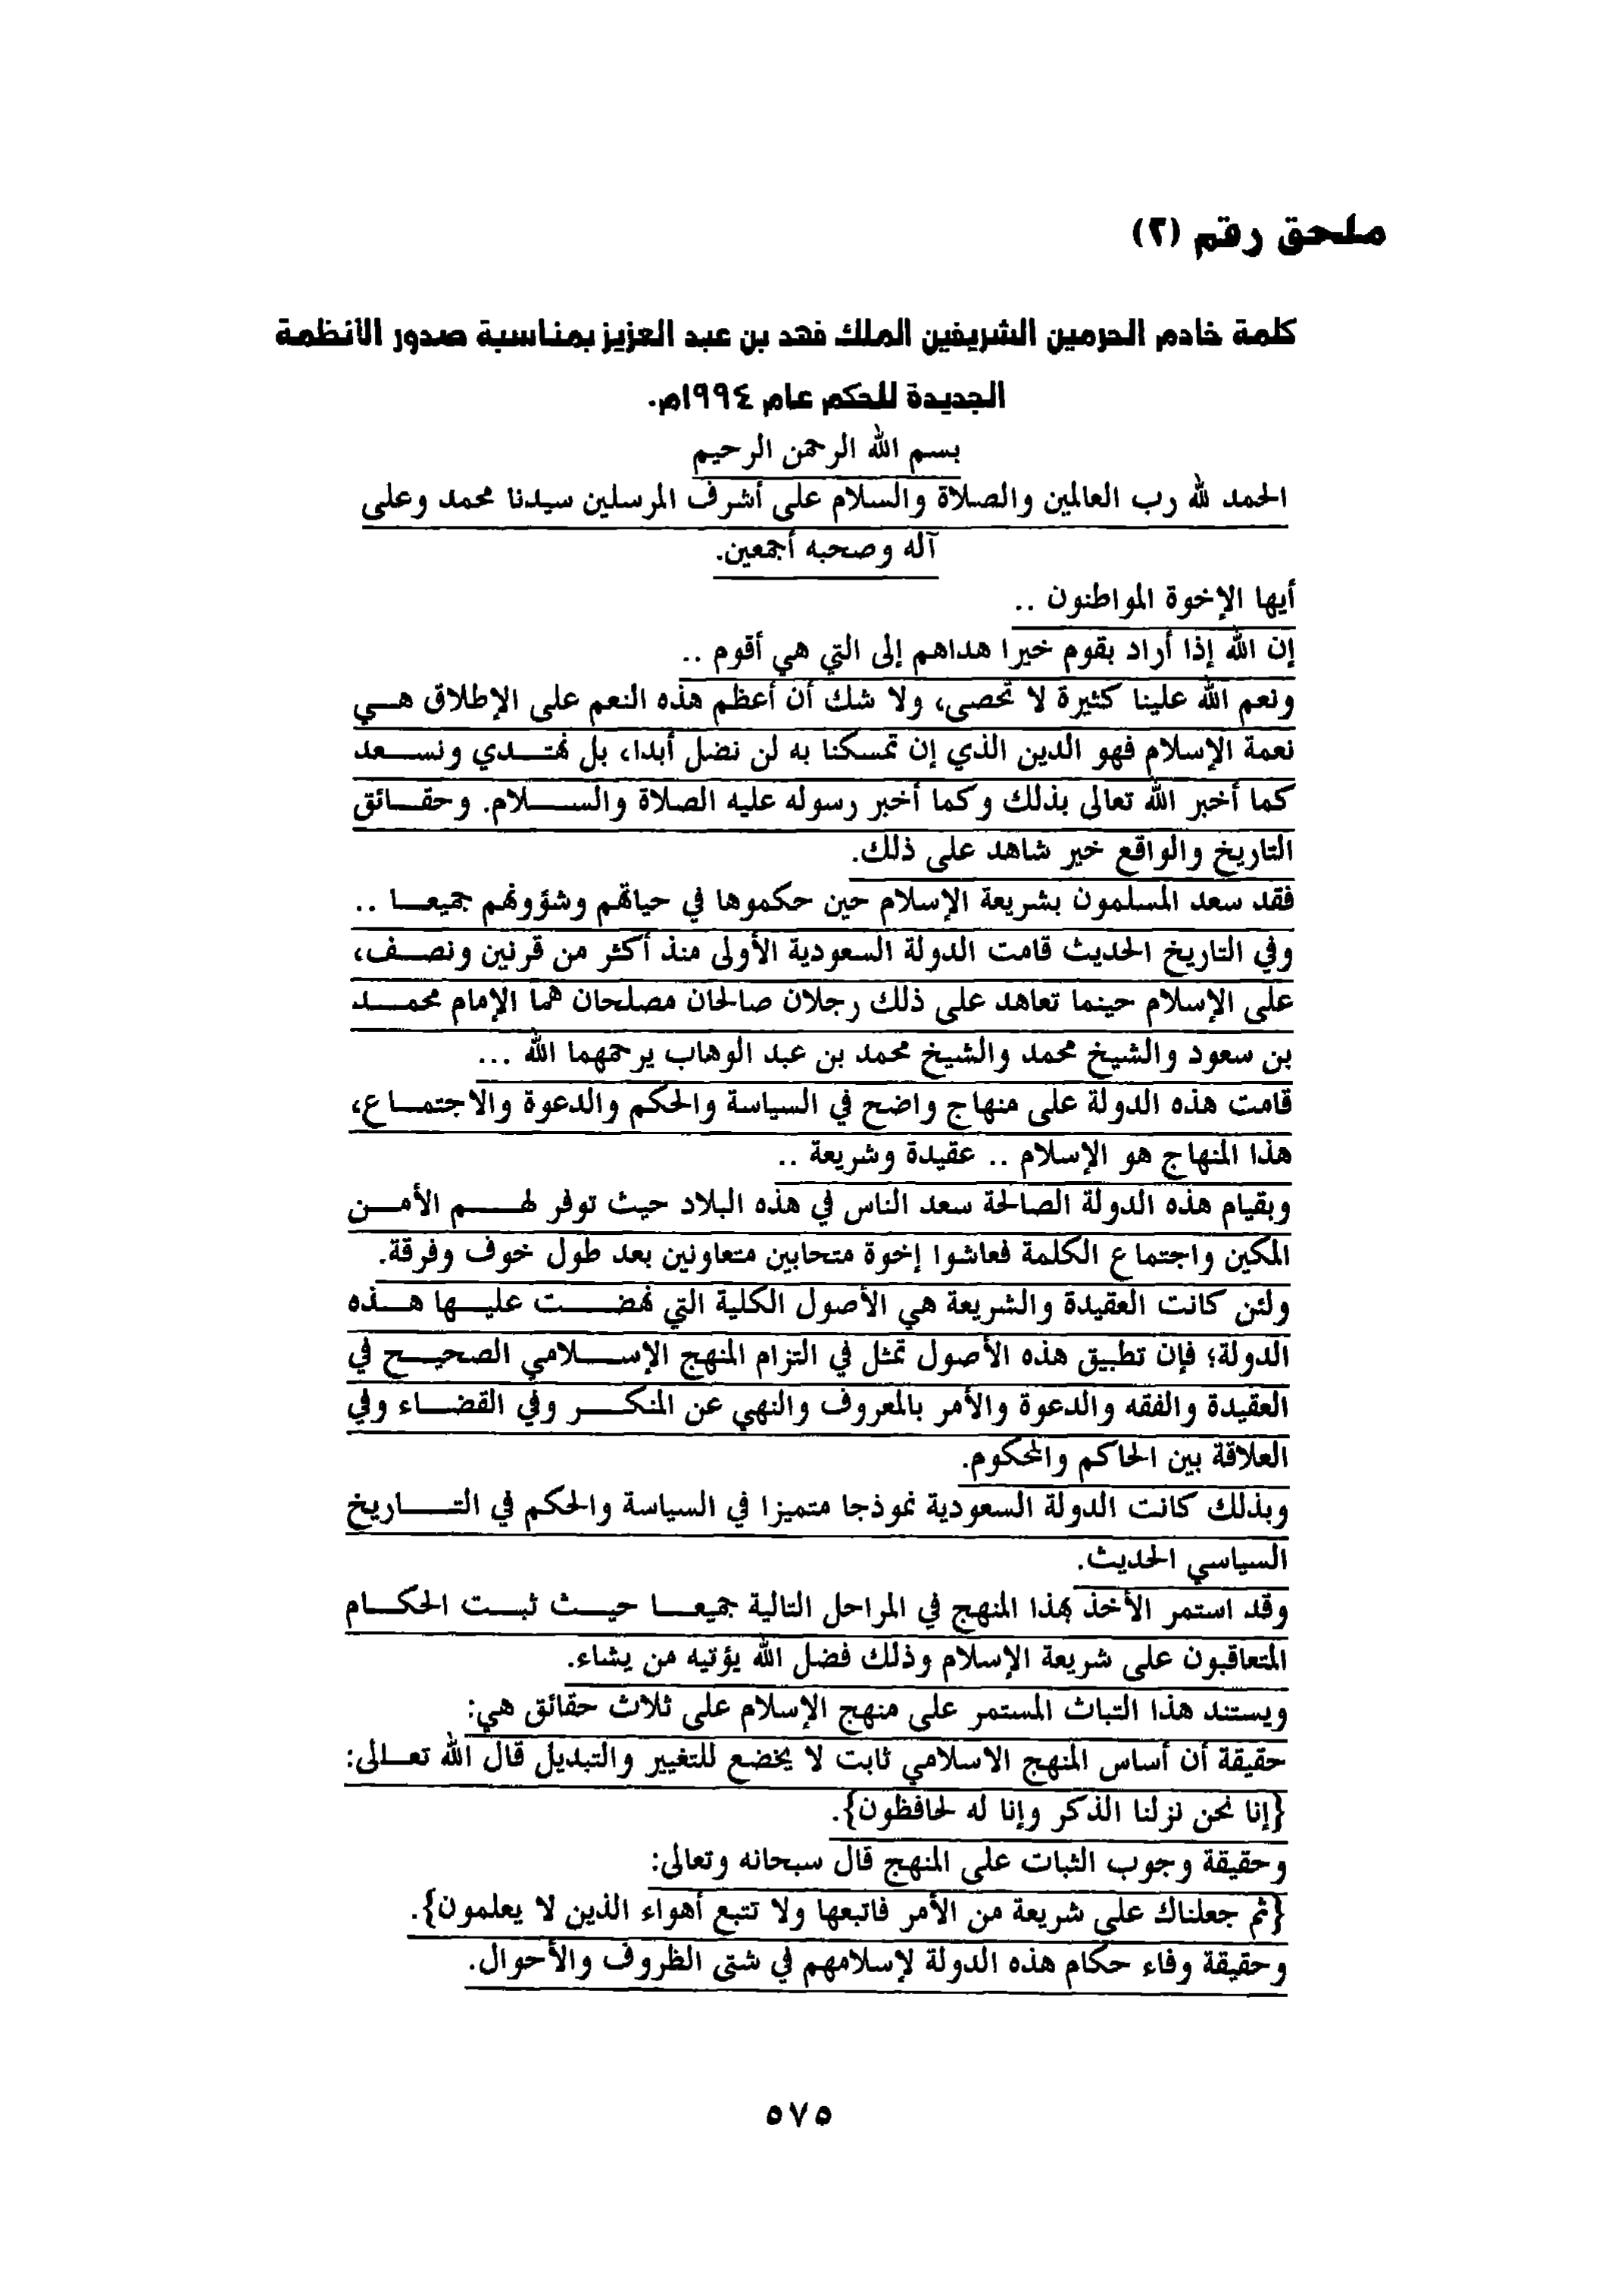 ملحق رقم (٢)
كلمة خادم الحرمين الشريفين الملك فهد بن عبد العزيز بمناسبة صدور الأنظمة
الجديدة للحكم عام ١٩٩٤م.
بسم الله الرحمن الرحيم
الحمد لله رب العالمين والصلاة والسلام على أشرف المرسلين سيدنا محمد وعلى
آله وصحبه أجمعين.
أيها الإخوة المواطنون ..
إن الله إذا أراد بقوم خيرا هداهم إلى التي هي أقوم ..
ونعم الله علينا كثيرة لا تحصى، ولا شك أن أعظم هذه النعم على الإطلاق هي
نعمة الإسلام فهو الدين الذي إن تمسكنا به لن نضل أبدا، بل نهتدي ونسعد
كما أخبر الله تعالى بذلك وكما أخبر رسوله عليه الصلاة والسلام. وحقائق
التاريخ والواقع خير شاهد على ذلك.
فقد سعد المسلمون بشريعة الإسلام حين حكموها في حياتهم وشؤونهم جميعا ..
وفي التاريخ الحديث قامت الدولة السعودية الأولى منذ أكثر من قرنين ونصف،
على الإسلام حينما تعاهد على ذلك رجلان صالحان مصلحان هما الإمام محمد
بن سعود والشيخ محمد والشيخ محمد بن عبد الوهاب يرحمهما الله ...
قامت هذه الدولة على منهاج واضح في السياسة والحكم والدعوة والاجتماع،
هذا المنهاج هو الإسلام .. عقيدة وشريعة ..
وبقيام هذه الدولة الصالحة سعد الناس في هذه البلاد حيث توفر لهم الأمن
المكين واجتماع الكلمة فعاشوا إخوة متحابين متعاونين بعد طول خوف وفرقة.
ولئن كانت العقيدة والشريعة هي الأصول الكلية التي نهضت عليها هذه
الدولة؛ فإن تطبيق هذه الأصول تمثل في التزام المنهج الإسلامي الصحيح في
العقيدة والفقه والدعوة والأمر بالمعروف والنهي عن المنكر وفي القضاء وفي
العلاقة بين الحاكم والمحكوم.
وبذلك كانت الدولة السعودية نموذجا متميزا في السياسة والحكم في التاريخ
السياسي الحديث.
وقد استمر الأخذ بهذا المنهج في المراحل التالية جميعا حيث ثبت الحكام
المتعاقبون على شريعة الإسلام وذلك فضل الله يؤتيه من يشاء.
ويستند هذا التباث المستمر على منهج الإسلام على ثلاث حقائق هي:
حقيقة أن أساس المنهج الاسلامي ثابت لا يخضع للتغيير والتبديل قال الله تعالى:
{إنا نحن نزلنا الذكر وإنا له لحافظون}.
وحقيقة وجوب الثبات على المنهج قال سبحانه وتعالى:
{ثم جعلناك على شريعة من الأمر فاتبعها ولا تتبع أهواء الذين لا يعلمون}.
وحقيقة وفاء حكام هذه الدولة لإسلامهم في شتى الظروف والأحوال.
٥٧٥